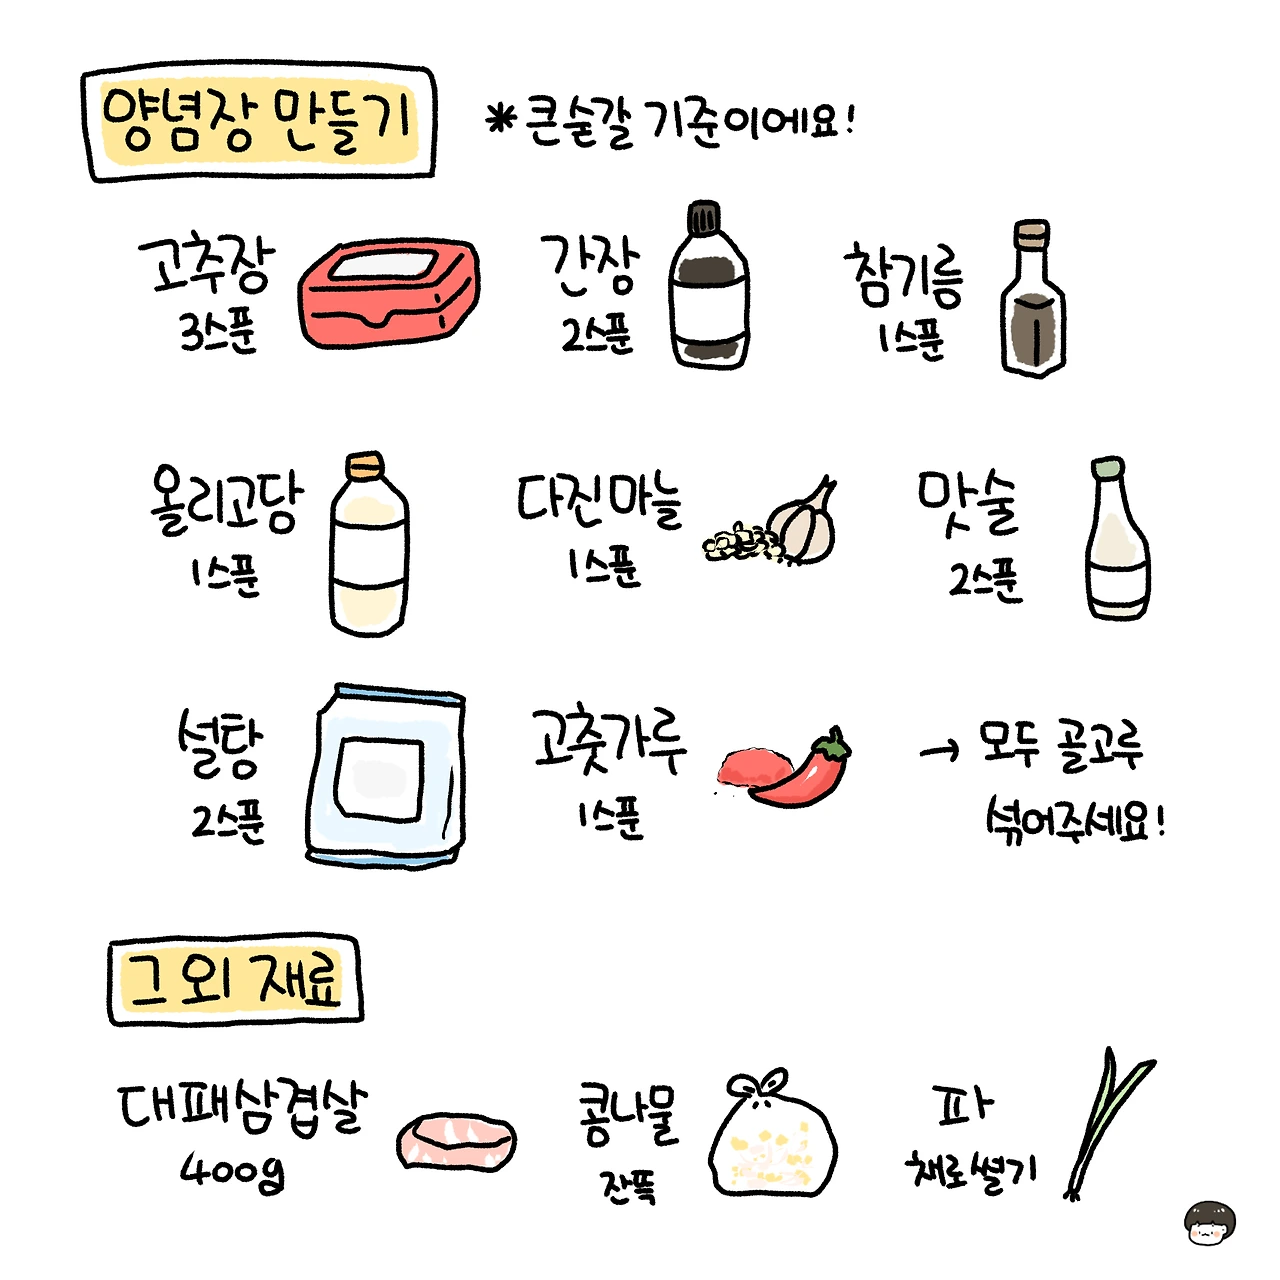 양념장 만들기
* 큰술갈 기준이에요!
고추장
3스푼
간장
2스푼
참기름
1스푼
올리고당
1스푼
다진마늘
1스푼
맛술
2스푼
설탕
2스푼
고춧가루
1스푼
→ 모두 골고루
섞어주세요!
그 외 재료
대패삼겹살
400g
콩나물
잔뜩
파
채로썰기